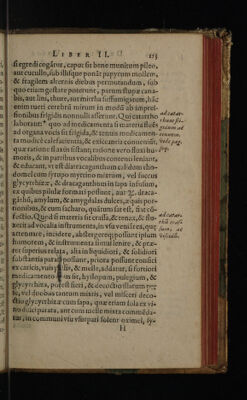 LIBER II. 113
si egredi cogātur, caput sit bene munitum pileo,
aut cucullo, sub illisque ponāt papyrum mollem,
& fragilem alternis diebus permutandum, sub
quo etiam gestare poterunt, pannū stupæ canabis,
aut lini, thure, aut myrrha suffumigatum, hāc
enim tueri cerebrū mirum in modū ab impressionibus
frigidis nonnulli asserunt. Qui catarrho
laborant: quo ad medicamenta si materia fluās
ad organa vocis sit frigida, & tenuis medicamenta
modicè calefacientia, & exiccantia conveniūt,
quæ ratione siaxis instant, ratione verò fluxi humoris,
& in partibus vocalibus contenti leniant,
& educant, vt est diatragacanthum calidum rhodomel
cum syropo myrtino mixtum, vel succus
glycyrrhizæ, & dracaganthum in apo infusum,
ex quibus pilulæ formari possunt, aut draca-
gāthō, amylum, & amygdalas dulces, æquis portionibus,
& cum sacharo, quātum sat est, fiat cōfectio.
Quòd si materia sit crassa, & tenax, & fluxerit
ad vocalia instrumenta, in vsu veniāt ea, quæ
attenuare, incidere, abstergereq; possunt ipsum
humorem, & instrumenta simul lenire, & præter
superius relata, alia in liquidiori, & solidiori
substantia parari possunt, priora possunt confici
ex caricis, vuis passulis, & melle, addatur, si fortiori
medicamento opus sit, hyssopum, pulegium, &
glycyrrhiza, potest fieri, & decoctio illarum per
se, vel duobus tantum mixtis, vel misceri decoctio
glycyrrhizæ cum sapa, quæ etiam sola ex vino
dulci parata, aut cum melle mixta commēdatur,
in communi vsu vsurpari solent oximel, sy-
H
ad catarrhum
frigidum ad
tenuem.
Vide pag.
ad catarrhū
crassum, ad